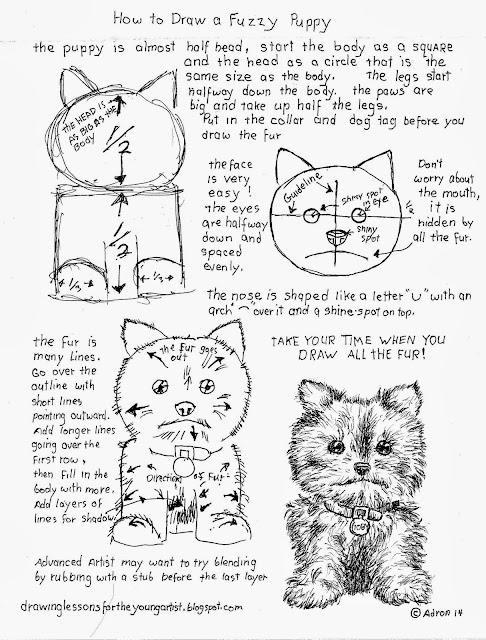 How to Draw a Fuzzy Puppy
the puppy is almost half head, start the body as a SQUARE
and the head as a circle that is the
same size as the body. The legs start
halfway down the body. the paws are
big and take up half the legs.
Put in the collar and dog tag before you
draw the fur
THE HEAD IS
AS BIG AS THE
BODY
1/2
1/2
1/3
1/3
the face
is very
easy!
The eyes
are halfway
down and
spaced
evenly.
Guideline
shiny spot
in eye
1/2
shiny
spot
Don't
worry about
the mouth,
it is
hidden by
all the fur.
The nose is shaped like a letter "U" with an
arch "⌒" over it and a shine-spot on top.
the fur is
many lines.
Go over the
outline with
short lines
pointing outward.
Add longer lines
going over the
first row,
then fill in the
body with more.
Add layers of
lines for shadow.
the fur goes
out
Direction of Fur
TAKE YOUR TIME WHEN YOU
DRAW ALL THE FUR!
Advanced Artist may want to try blending
by rubbing with a stub before the last layer
drawinglessonsfortheyoungartist.blogspot.com
© Adron 14